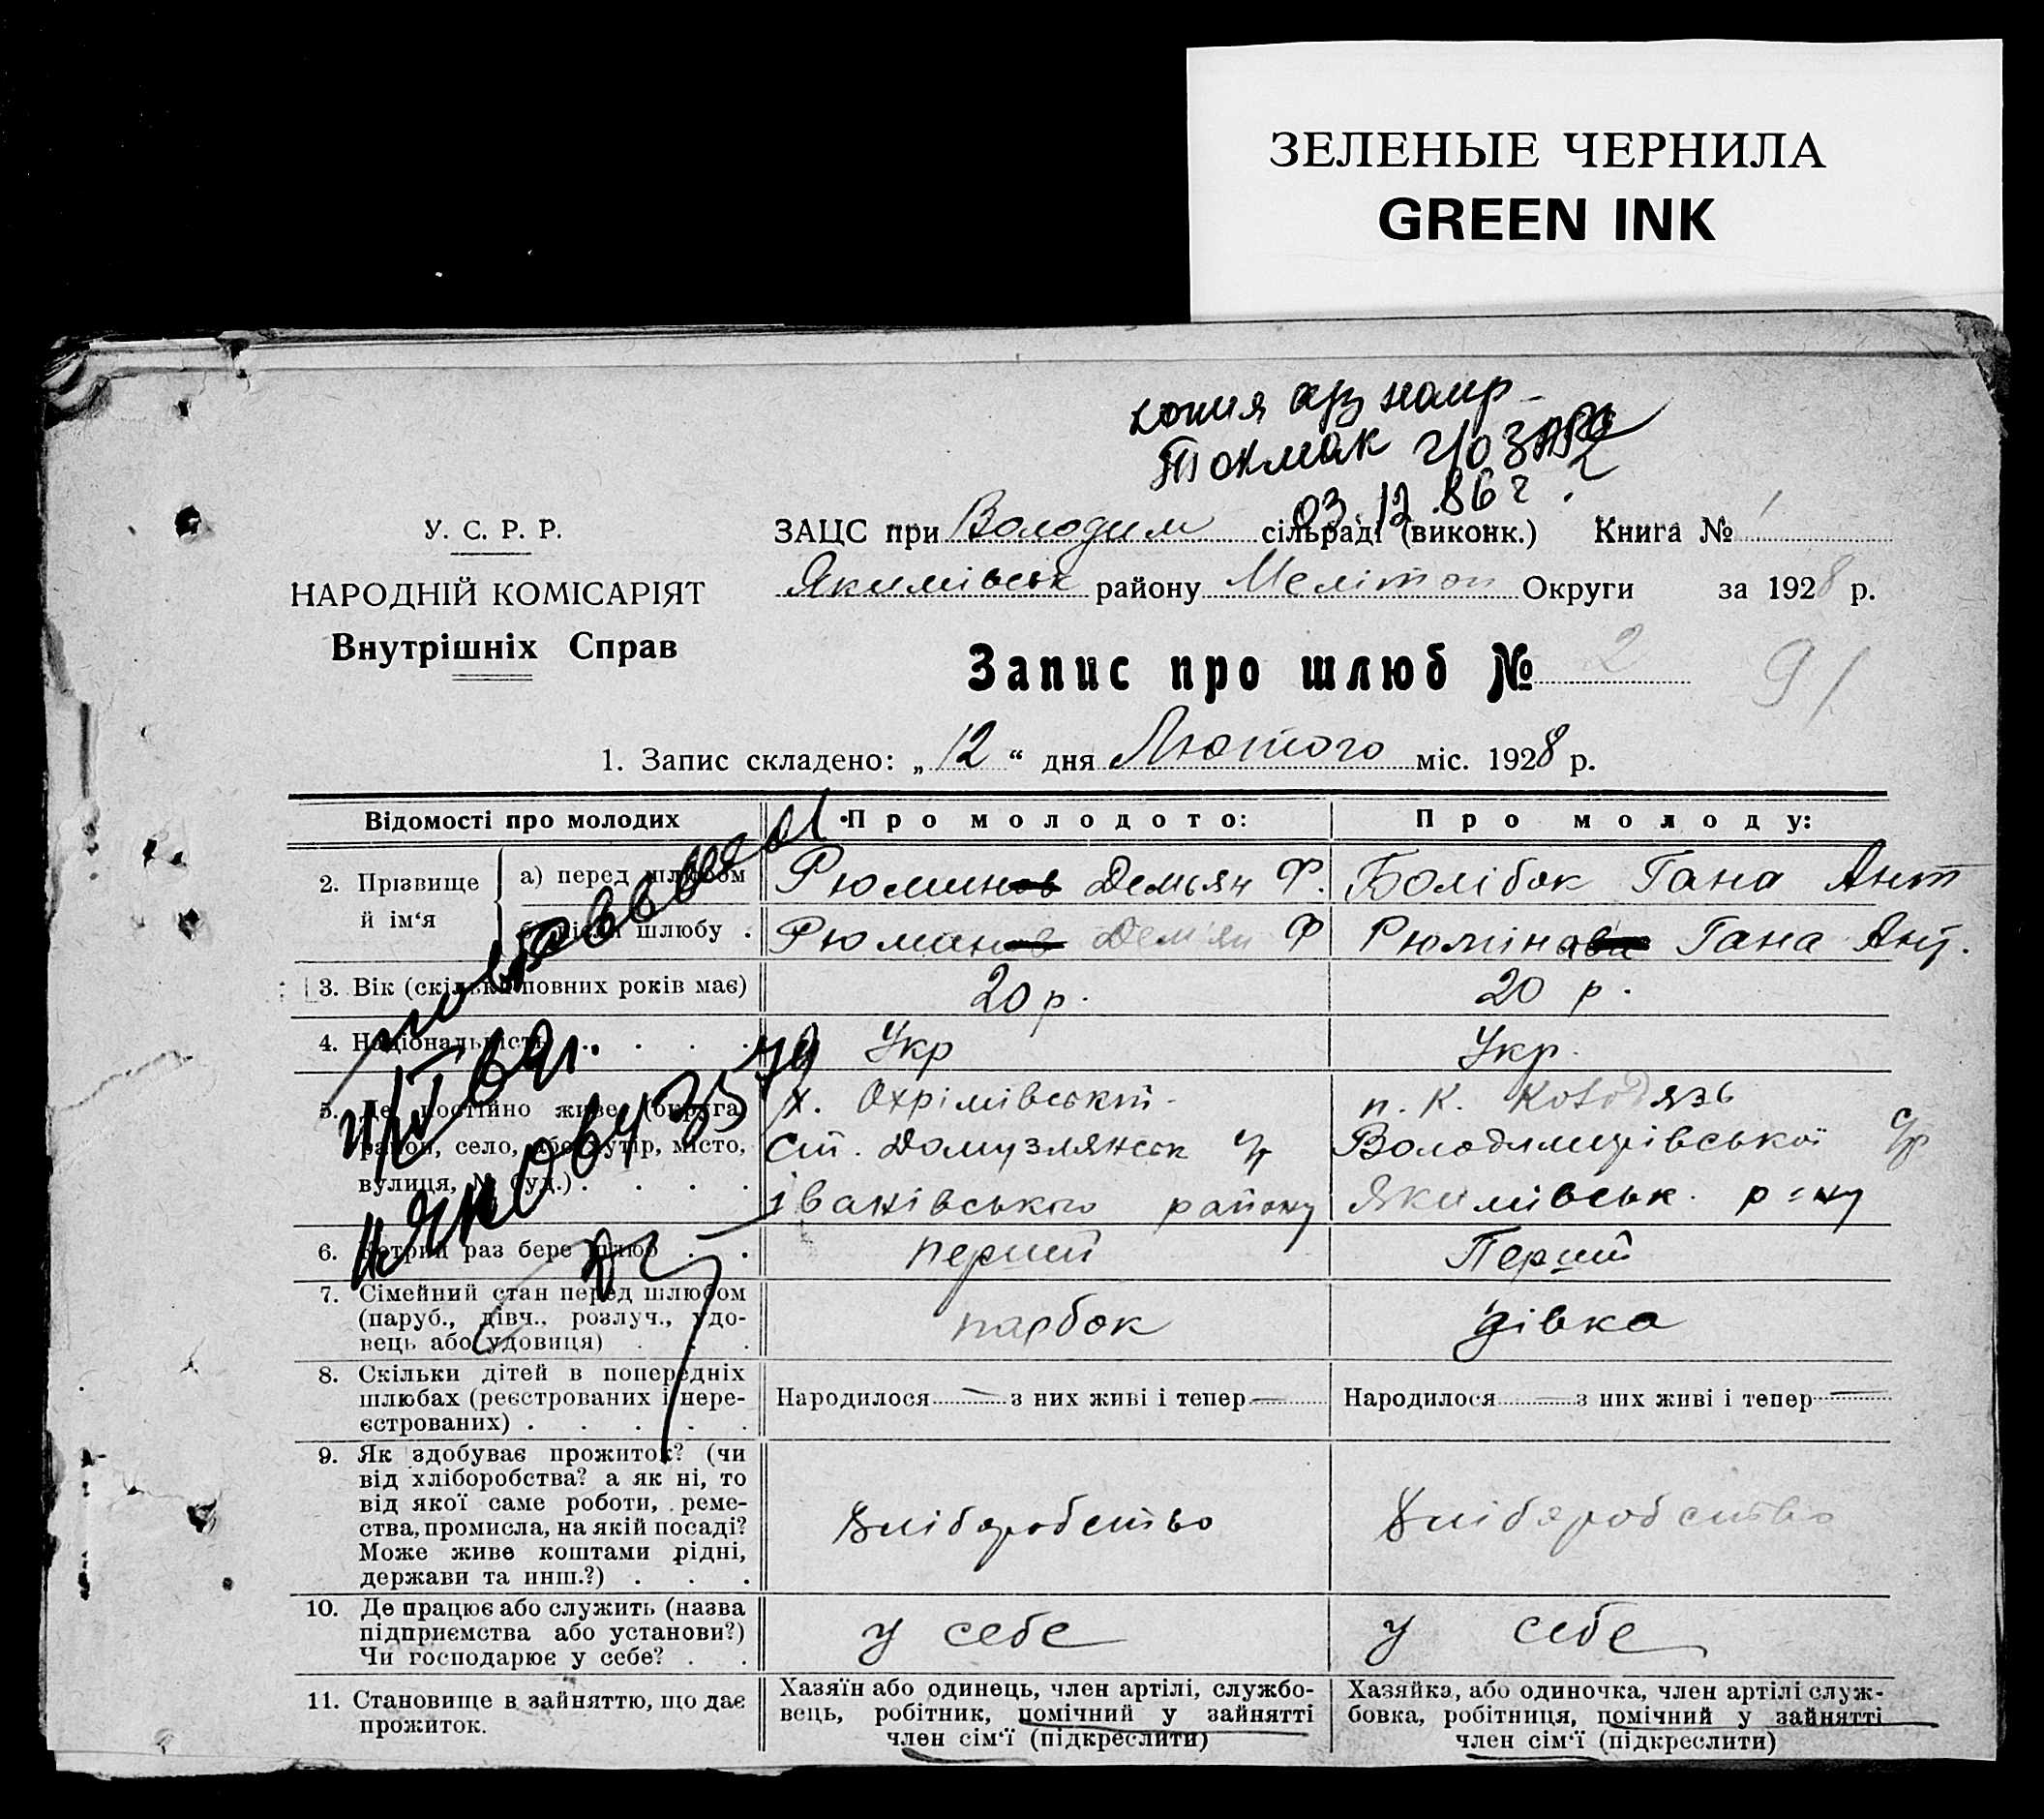 ЗЕЛЕНЫЕ ЧЕРНИЛА
GREEN INK
копия
Токмак
03.12.86г.
У. С. Р. Р.
НАРОДНІЙ КОМІСАРІЯТ
Внутрішніх Справ
ЗАЦС при Володим сільраді (виконк.) Книга № 1
Якимівськ району Мелітоп Округи за 1928 р.
Запис про шлюб № 2
91
1. Запис складено: „12“ дня Лютого міс. 1928 р.
Відомості про молодих
Про молодого:
Про молоду:
2. Прізвище й ім‘я
а) перед шлюбом
Рюминов Демьян Ф.
Болібок Гана Ант
б) після шлюбу .
Рюминов Дем'ян Ф
Рюмінова Гана Ант.
3. Вік (скільки повних років має)
20 р.
20 р.
4. Національність . . . .
Укр
Укр.
5. Де постійно живе (округа,
район, село, або хутір, місто,
вулиця, № буд.) . . . .
х. Охрімівський
ст. Домузлянськ с/р
іванівського району
п. К. Колодязь
Володимирівської с/р
Якимівськ. р-ну
6. Котрий раз бере шлюб . .
перший
Перший
7. Сімейний стан перед шлюбом
(паруб., дівч., розлуч., удо-
вець або удовиця) . . .
парбок
дівка
8. Скільки дітей в попередніх
шлюбах (реєстрованих і нере-
єстрованих) . . . . .
Народилося — з них живі і тепер —
Народилося — з них живі і тепер —
9. Як здобуває прожиток? (чи
від хліборобства? а як ні, то
від якої саме роботи, реме-
ства, промисла, на якій посаді?
Може живе коштами рідні,
держави та инш.?) . . .
хліборобство
хліборобство
10. Де працює або служить (назва
підприємства або установи?)
Чи господарює у себе? . .
у себе
у себе
11. Становище в зайняттю, що дає
прожиток.
Хазяїн або одинець, член артілі, службо-
вець, робітник, помічний у зайнятті
член сім‘ї (підкреслити)
Хазяйка, або одиночка, член артілі служ-
бовка, робітниця, помічний у зайнятті
член сім‘ї (підкреслити)